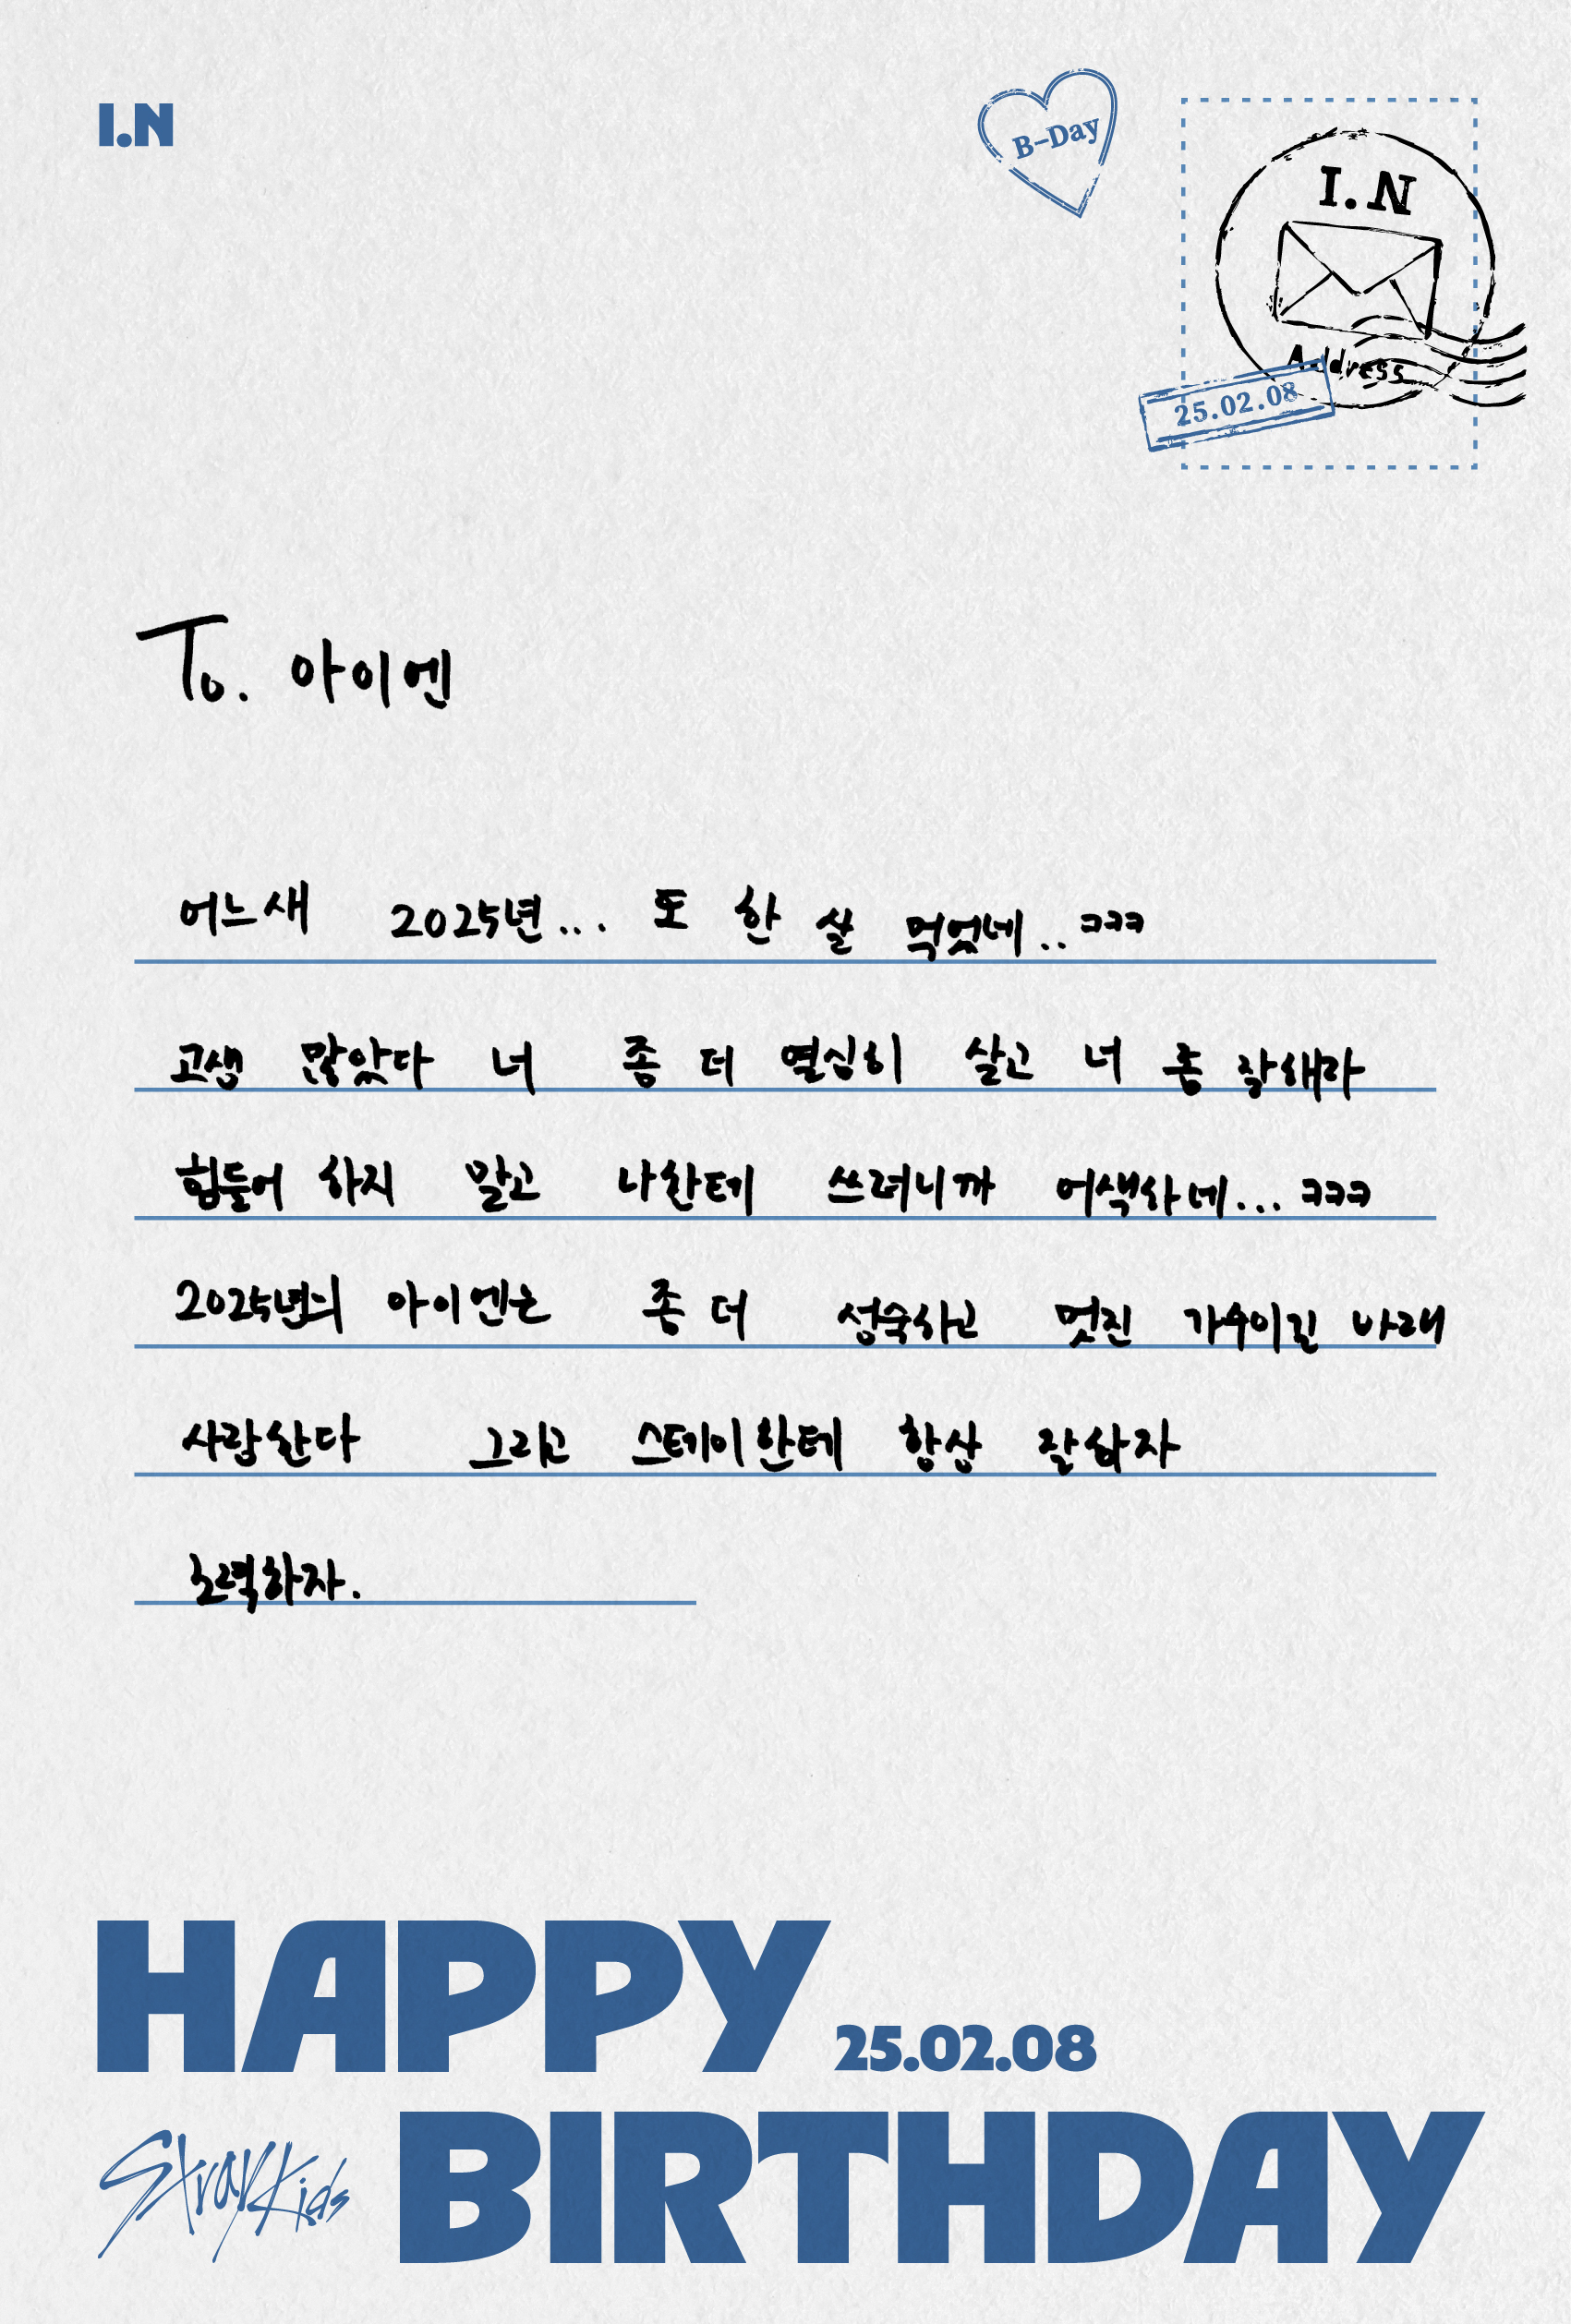 I.N
B-Day
I.N
Address
25.02.08
To. 아이엔
어느새 2025년... 또 한 살 먹었네..ㅋㅋㅋ
고생 많았다 너 좀 더 열심히 살고 너 좀 잘해라
힘들어 하지 말고 나한테 쓰려니까 어색하네...ㅋㅋㅋ
2025년의 아이엔은 좀 더 성숙하고 멋진 가수이길 바래
사랑한다 그리고 스테이한테 항상 잘하자
노력하자.
HAPPY 25.02.08
Stray Kids BIRTHDAY